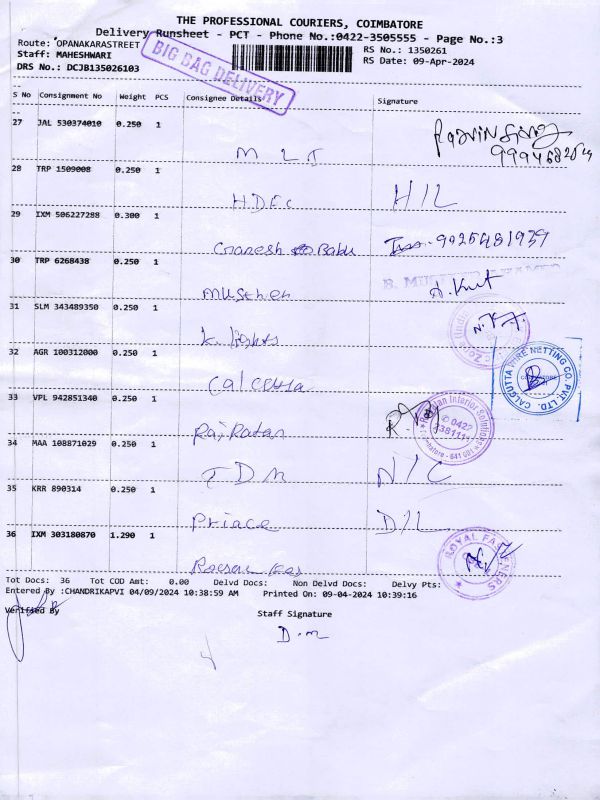 THE PROFESSIONAL COURIERS, COIMBATORE
Delivery Runsheet - PCT - Phone No.:0422-3505555 - Page No.:3
Route: OPANAKARASTREET
RS No.: 1350261
Staff: MAHESHWARI
RS Date: 09-Apr-2024
DRS No.: DCJB135026103
BIG BAG DELIVERY
S No Consignment No Weight PCS Consignee Details Signature
27 JAL 530374010 0.250 1
9994682514
28 TRP 1509008 0.250 1
HDFC H/L
29 IXM 506227288 0.300 1
Ganesh Babu 9025481939
30 TRP 6268438 0.250 1
31 SLM 343489350 0.250 1
K. lights
32 AGR 100312000 0.250 1
Calcutta
CALCUTTA WIRE NETTING CO. PVT. LTD.
33 VPL 942851340 0.250 1
Raj Ratan
Interior Solutions
0422
34 MAA 108871029 0.250 1
N/C
35 KRR 890314 0.250 1
Prince D/L
36 IXM 303180870 1.290 1
ROYAL FASTENERS
Tot Docs: 36 Tot COD Amt: 0.00 Delvd Docs: Non Delvd Docs: Delvy Pts:
Entered By :CHANDRIKAPVI 04/09/2024 10:38:59 AM Printed On: 09-04-2024 10:39:16
Verified By
Staff Signature
D.m